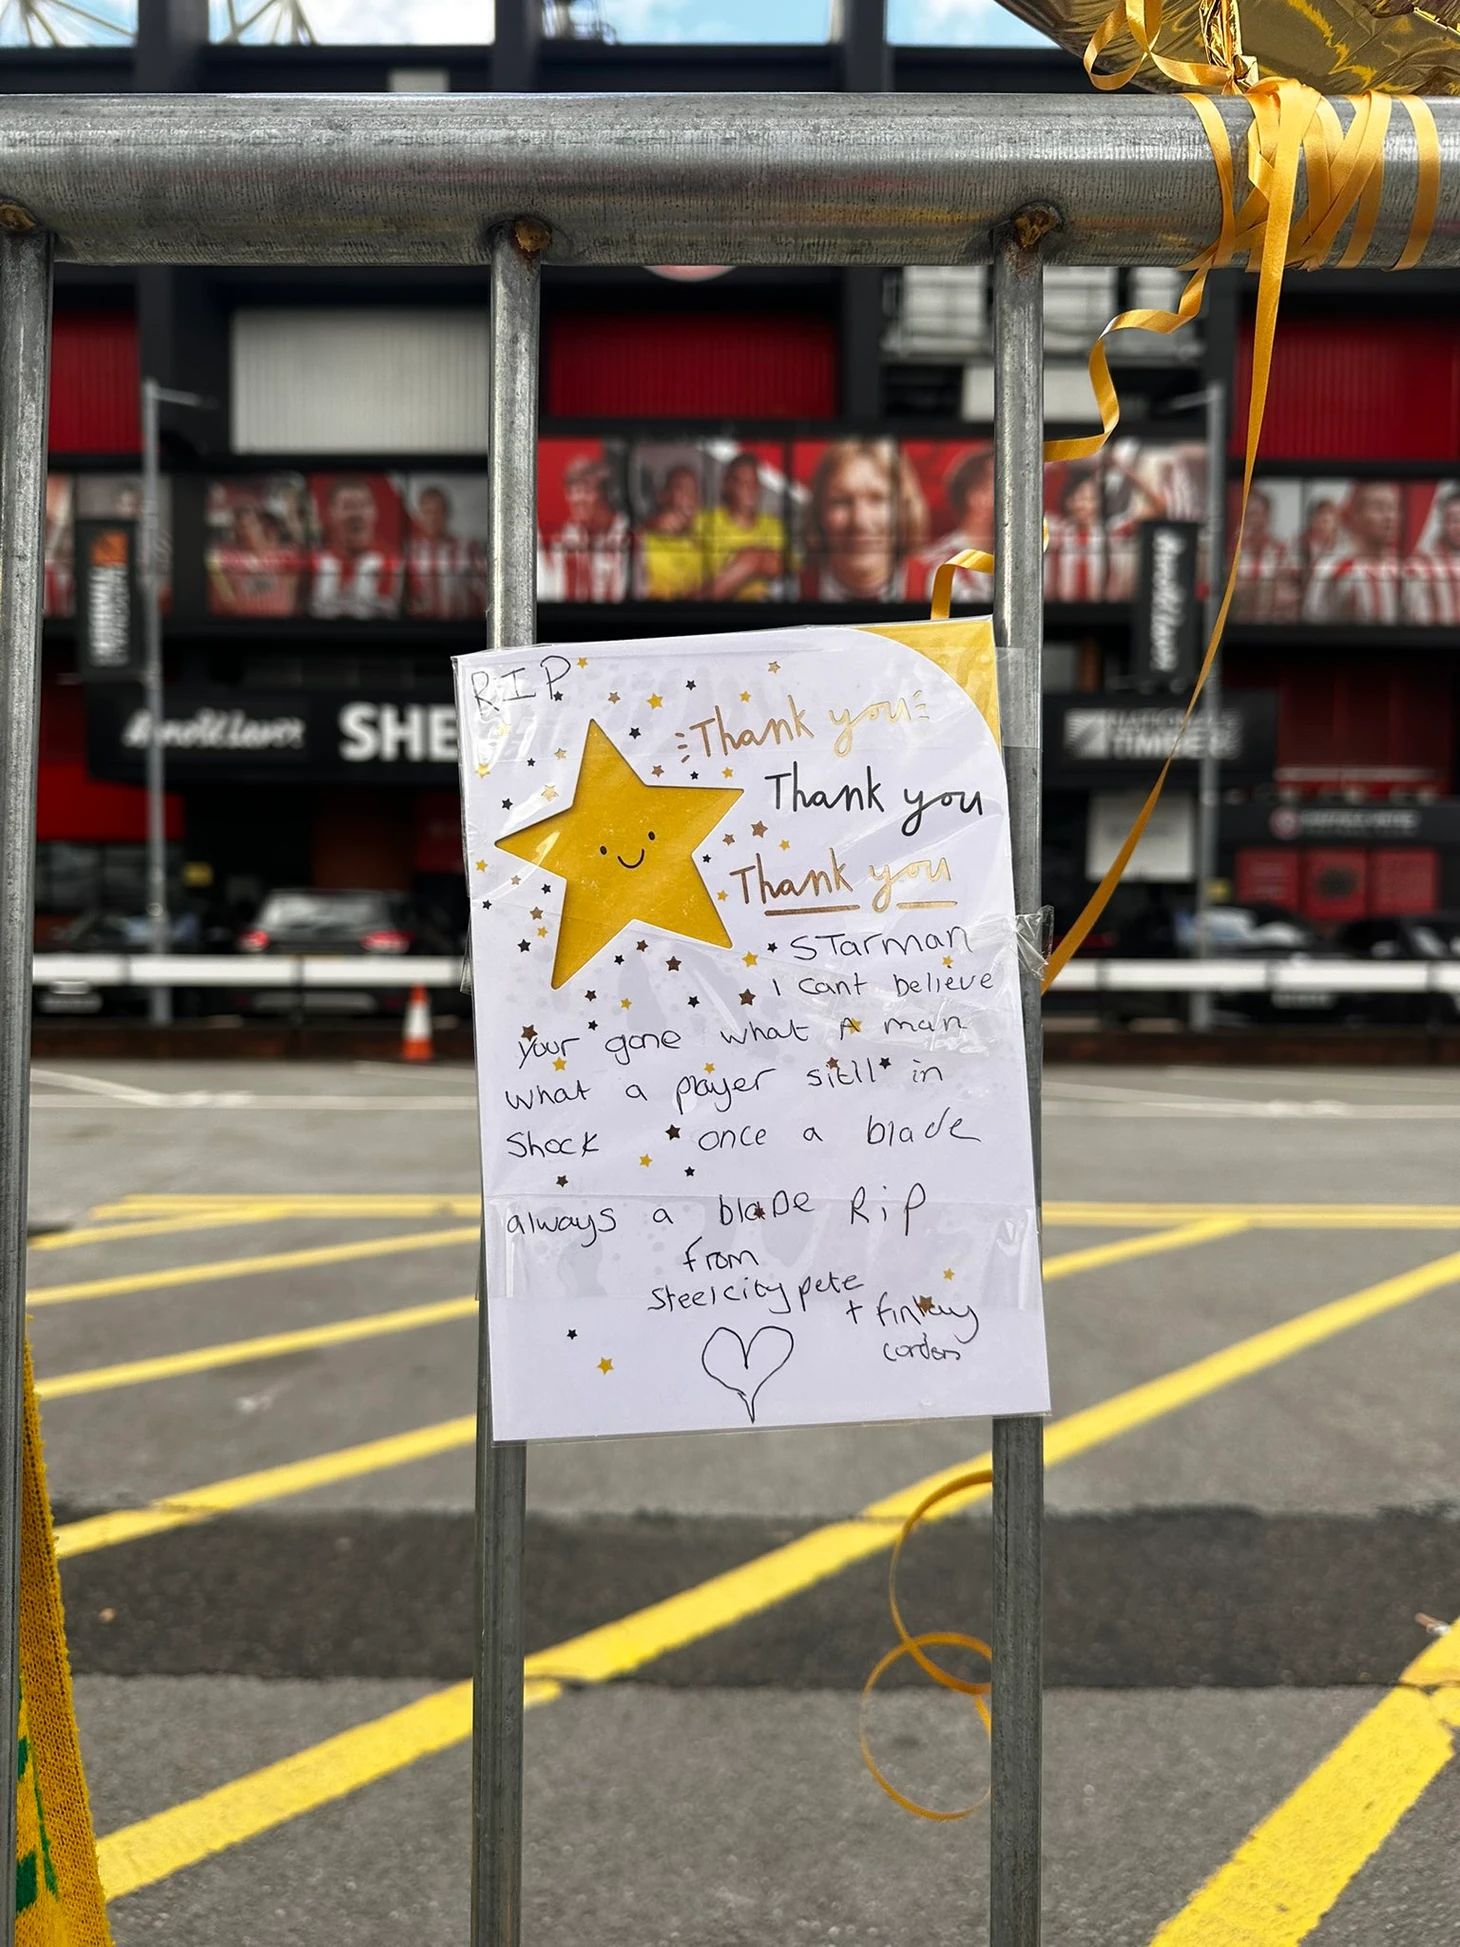 SHE
NATIONAL
TIMBER
RIP
Thank you
Thank you
Thank you
STarman
I cant believe
your gone what A man
what a player sitll in
Shock once a blade
always a blaDe RiP
from
Steelcity pete
+ finlay